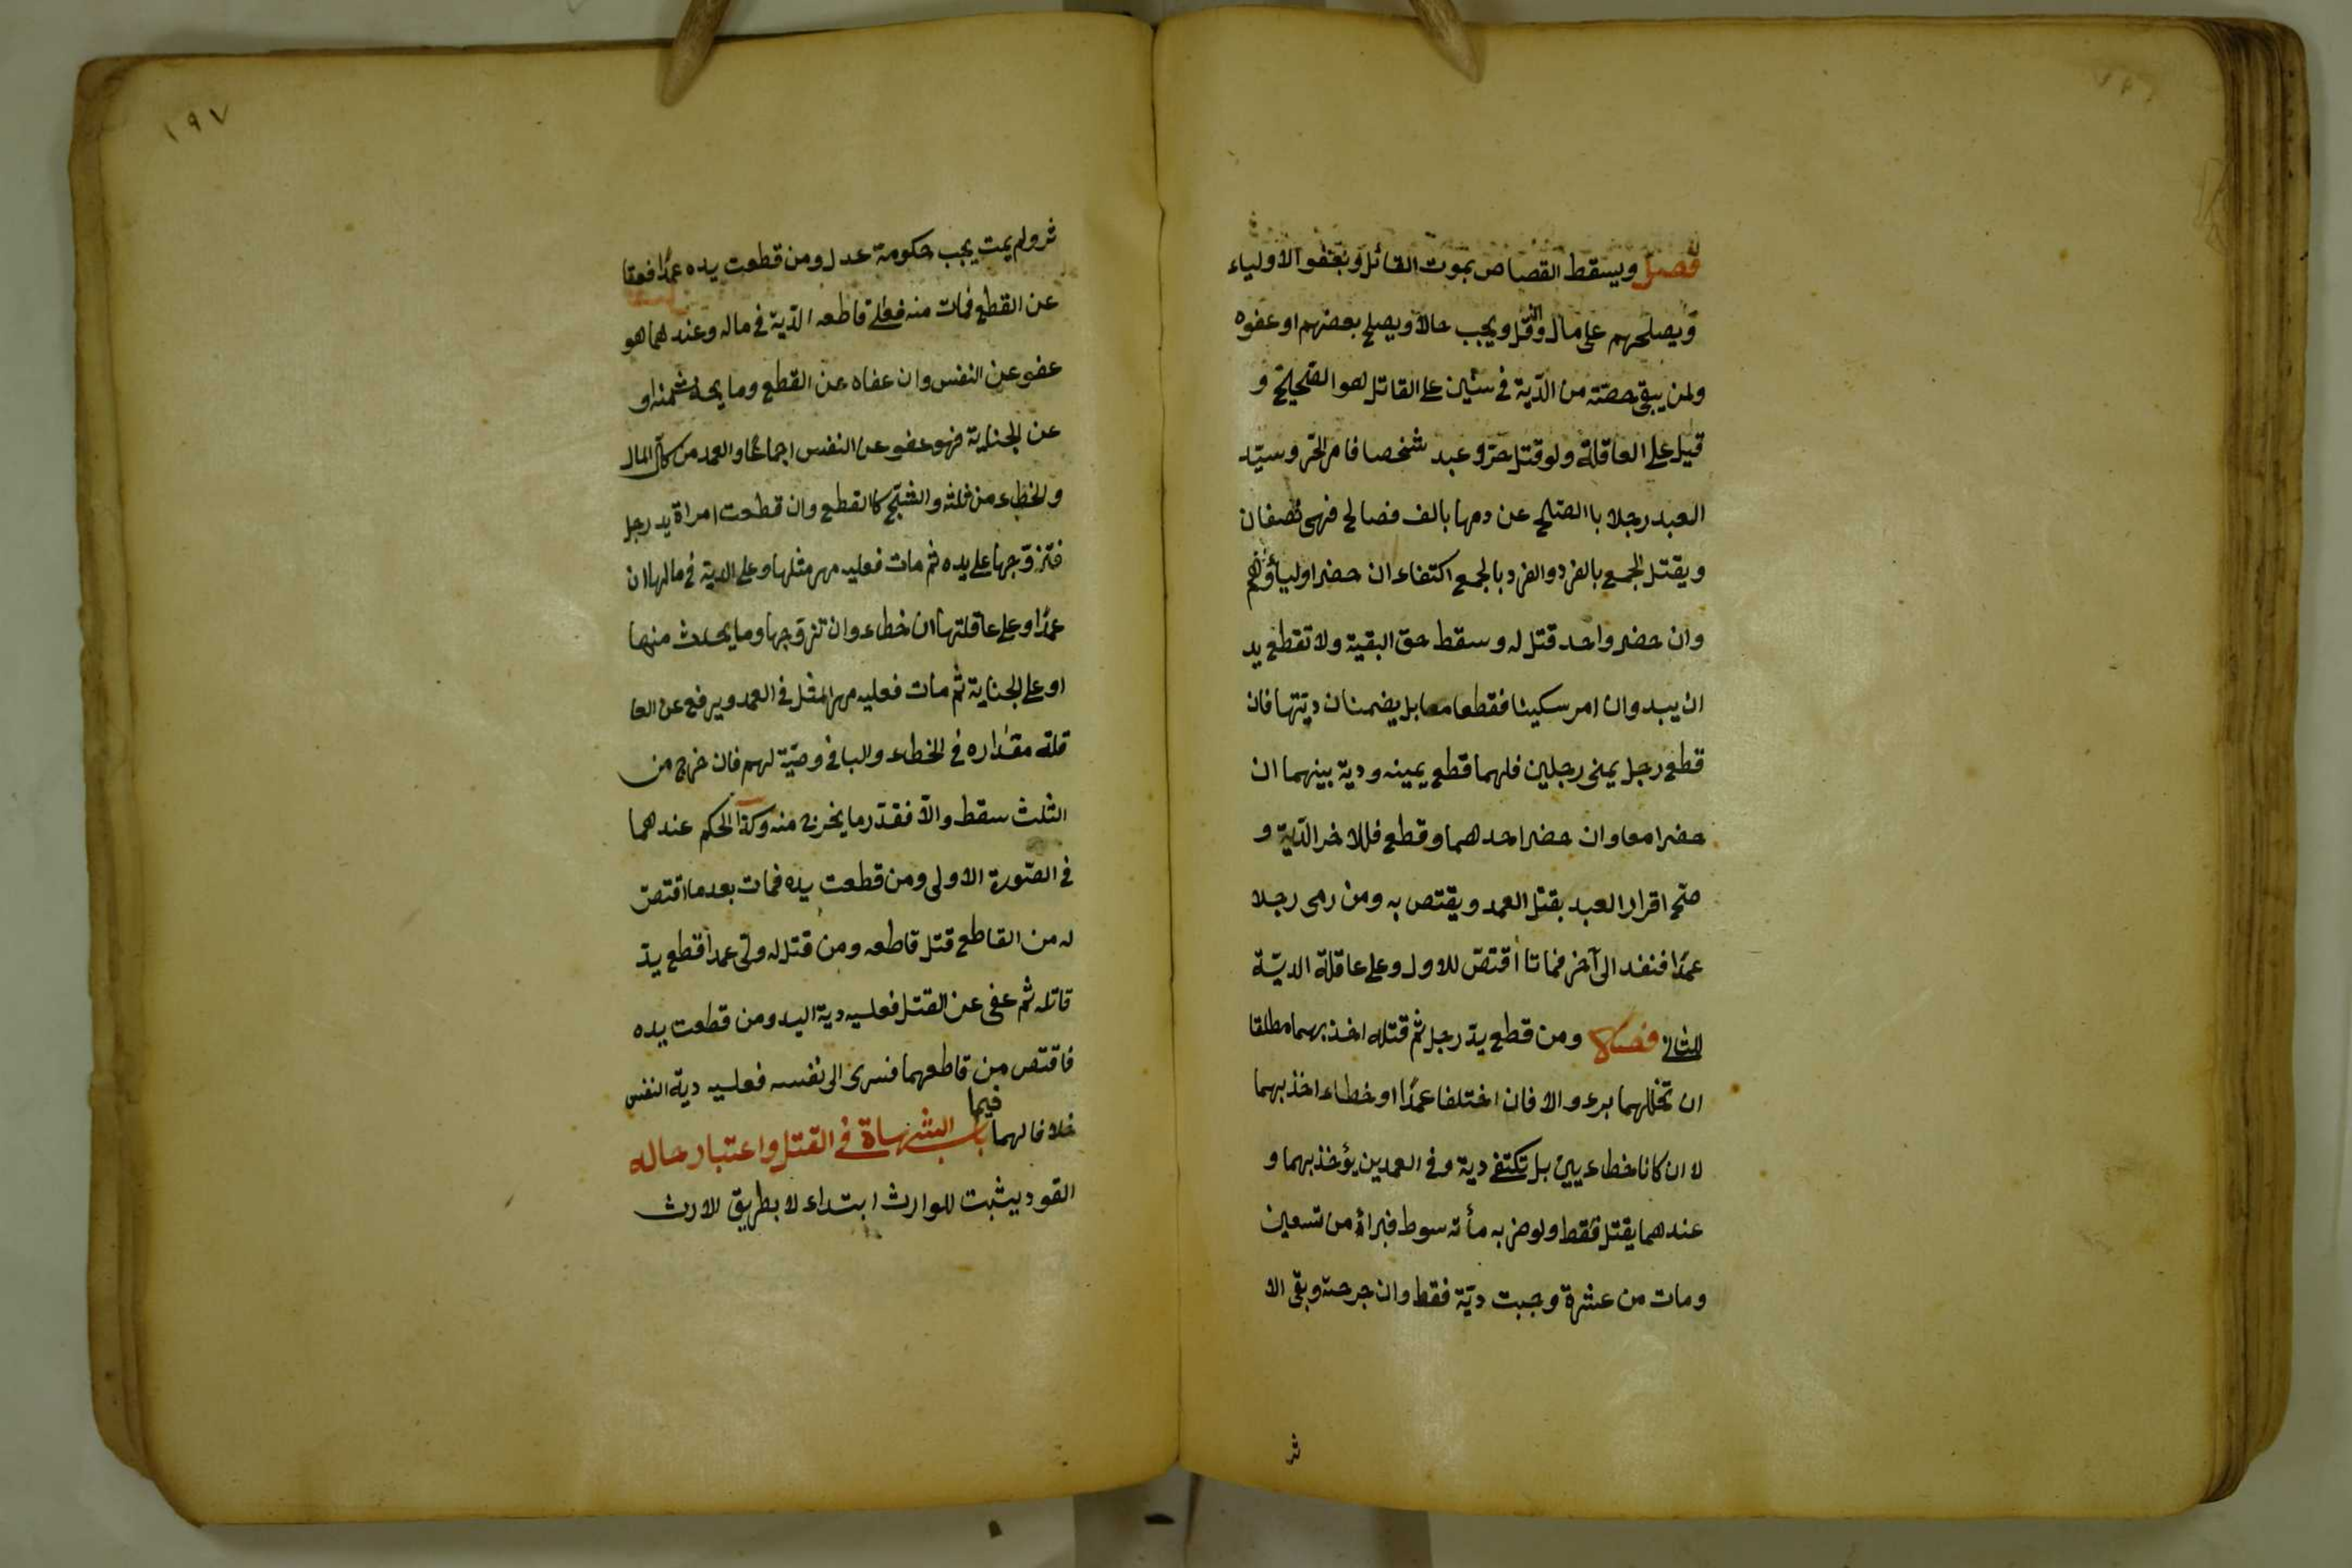 فصل ويسقط القصاص بموت القاتل وبعفو الاولياء
وبصلحهم على مال وان قل ويجب حالا ويصلح بعضهم او عفوه
ولمن يبقى حصته من الدّية في سنين على القاتل هو الصّحيح و
قيل على العاقلة ولو قتل حرّ وعبد شخصا فامر الحرّ وسيّد
العبد رجلا باالصّلح عن دمها بالف فصالح فهى نصفان
ويقتل الجمع بالفرد والفرد بالجمع اكتفاء ان حضر اولياؤهم
وان حضر واحد قتل له وسقط حق البقية ولا تقطع يد
ان بيد وان امر سكينا فقطعا معا بل يضمنان ديتها فان
قطع رجل يمنى رجلين فلهما قطع يمينه ودية بينهما ان
حضرا معا وان حضر احدهما وقطع فللاخر الدّية و
صحّ اقرار العبد بقتل العمد ويقتص به ومن رمى رجلا
عمدًا فنفد الى آخر فماتا اقتصّ للاول وعلى عاقلة الديّة
للثانى فصل ومن قطع يد رجل ثم قتله اخذ بهما مطلقا
ان تخللهما برء والا فان اختلفا عمدًا او خطاء اخذ بهما
لا ان كانا خطاءيين بل تكتفى دية وفى العمدين يؤخذ بهما و
عندهما يقتل فقط ولو ضربه مأته سوط فبراء من تسعين
ومات من عشرة وجبت ديّة فقط وان جرحته وبقى الا
ثر
١٩٧
ثر ولم يمت يجب حكومة عدل ومن قطعت يده عمدًا فعفا
عن القطع فمات منه فعلى قاطعه الدّية فى ماله وعندهما هو
عفو عن النفس وان عفاه عن القطع وما يحدث منه او
عن الجناية فهو عفو عن النفس اجماعًا والعمد من كل المال
والخطاء من ثلثه والشجّ كالقطع وان قطعت امراة يد رجل
فتزوّجها على يده ثم مات فعليه مهر مثلها وعلى الدية فى مالها ان
عمدًا وعلى عاقلتها ان خطاء وان تزوّجها وما يحدث منها
او على الجناية ثم مات فعليه مهر المثل فى العمد ويرفع عن العا
قلة مقداره فى الخطاء والباقى وصيّة لهم فان خرج من
الثلث سقط والاّ فقدر ما يخرج منه وكذا الحكم عندهما
فى الصّورة الاولى ومن قطعت يده فمات بعد ما اقتصّ
له من القاطع قتل قاطعه ومن قتل له ولىّ عمدا قطع يد
قاتله ثم عفى عن القتل فعليه دية اليد ومن قطعت يده
فاقتص من قاطعهما فسرى الى نفسه فعليه دية النفس
خلافا لهما فيما باب الشهاة فى القتل واعتبار حاله
القود يثبت للوارث ابتداء لا بطريق الارث